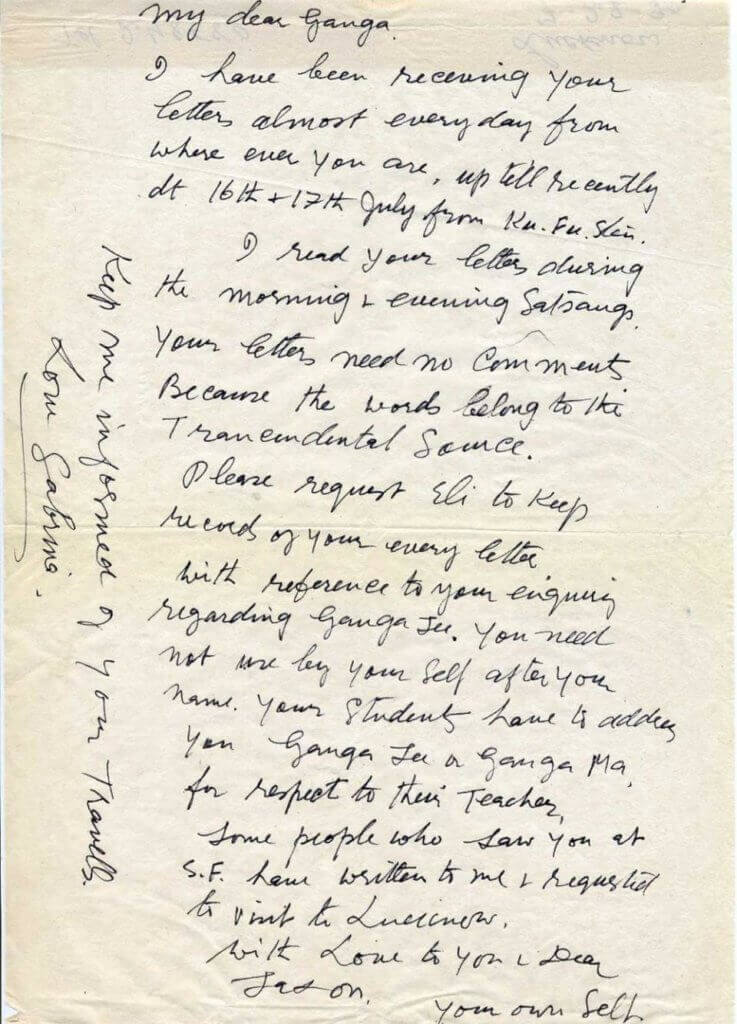 My dear Ganga.
I have been receiving your
letters almost everyday from
where ever you are, up till recently
dt 16th + 17th July from Ku. Fu. Stein.
I read your letters during
the morning & evening Satsangs.
Your letters need no Comments
Because the words belong to the
Trancendental Source.
Please request Eli to Keep
records of your every letter
with reference to your enquiry
regarding Ganga Jee. You need
not use by your Self after your
name. Your Students have to address
you Ganga Jee or Ganga Ma,
for respect to their Teacher,
Some people who saw you at
S.F. have written to me & requested
to visit to Lucknow.
With Love to you & Dear
Jason.
Your own Self
Keep me informed of your Travells.
Love Sabrina.